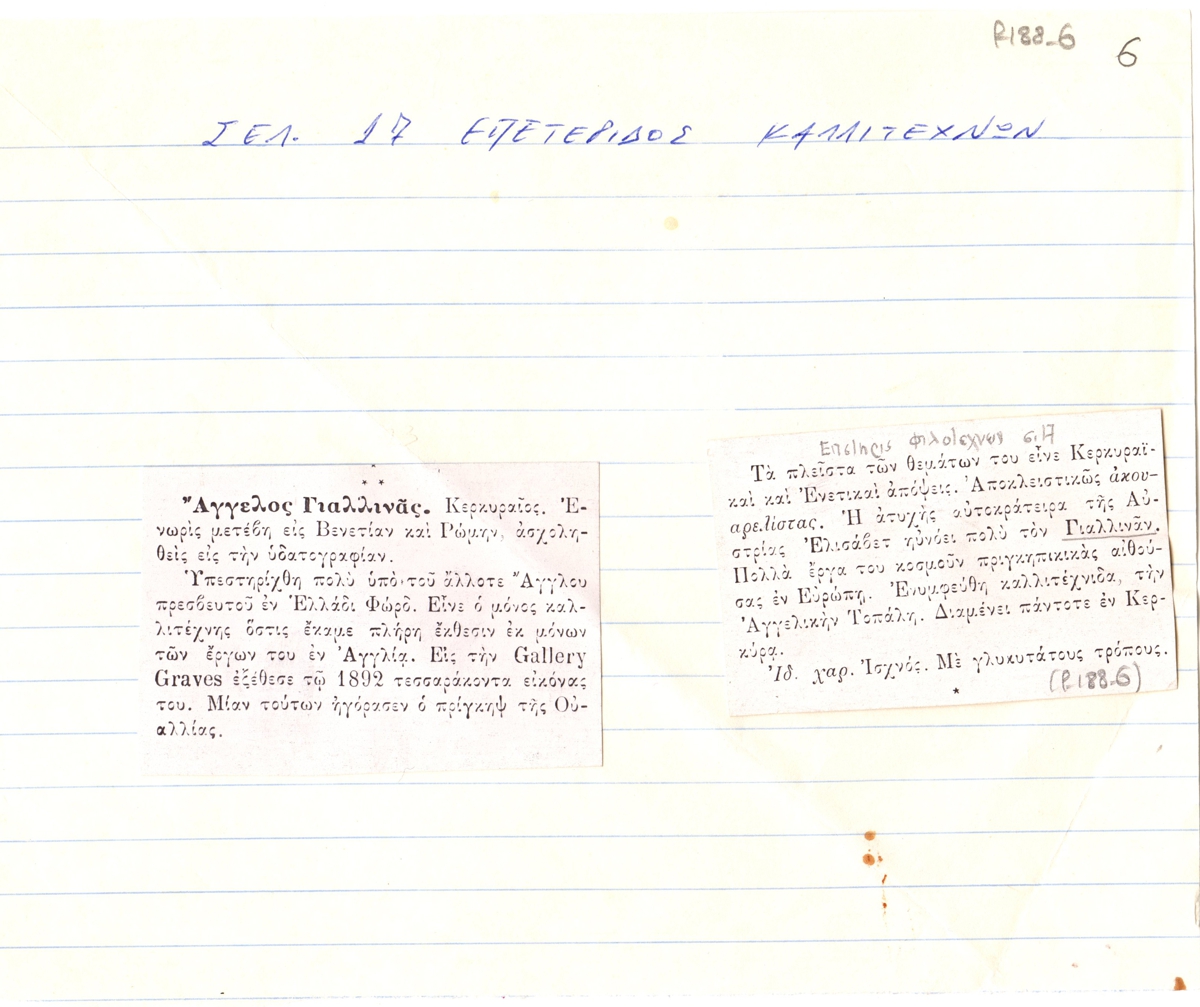 R188-6 6
ΣΕΛ. 17 ΕΠΕΤΕΡΙΔΟΣ ΚΑΛΛΙΤΕΧΝΩΝ
* * *
Ἄγγελος Γιαλλινᾶς. Κερκυραῖος. Ἐ-
νωρὶς μετέβη εἰς Βενετίαν καὶ Ρώμην, ἀσχολη-
θεὶς εἰς τὴν ὑδατογραφίαν.
Ὑπεστηρίχθη πολὺ ὑπὸ τοῦ ἄλλοτε Ἄγγλου
πρεσβευτοῦ ἐν Ἑλλάδι Φώρδ. Εἶνε ὁ μόνος καλ-
λιτέχνης ὅστις ἔκαμε πλήρη ἔκθεσιν ἐκ μόνων
τῶν ἔργων του ἐν Ἀγγλίᾳ. Εἰς τὴν Gallery
Graves ἐξέθεσε τῷ 1892 τεσσαράκοντα εἰκόνας
του. Μίαν τούτων ἠγόρασεν ὁ πρίγκηψ τῆς Οὐ-
αλλίας.
Επετηρίς φιλοτέχνων σ.17
Τὰ πλεῖστα τῶν θεμάτων του εἶνε Κερκυραϊ-
καὶ καὶ Ἐνετικαὶ ἀπόψεις. Ἀποκλειστικῶς ἀκου-
αρελίστας. Ἡ ἀτυχὴς αὐτοκράτειρα τῆς Αὐ-
στρίας Ἐλισάβετ ηὐνόει πολὺ τὸν Γιαλλινᾶν.
Πολλὰ ἔργα του κοσμοῦν πριγκηπικὰς αἰθού-
σας ἐν Εὐρώπῃ. Ἐνυμφεύθη καλλιτέχνιδα, τὴν
Ἀγγελικὴν Τοπάλη. Διαμένει πάντοτε ἐν Κερ-
κύρᾳ.
Ἰδ. χαρ. Ἰσχνός. Μὲ γλυκυτάτους τρόπους.
* (R188-6)